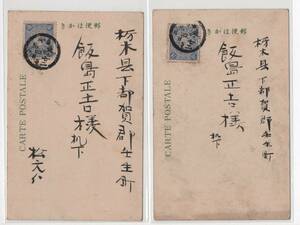 郵便はかき
CARTE POSTALE
栃木县下都賀郡壬生町
飯島正吉様
机下
郵便はかき
CARTE POSTALE
栃木县下都賀郡壬生町
飯島正吉様
机下